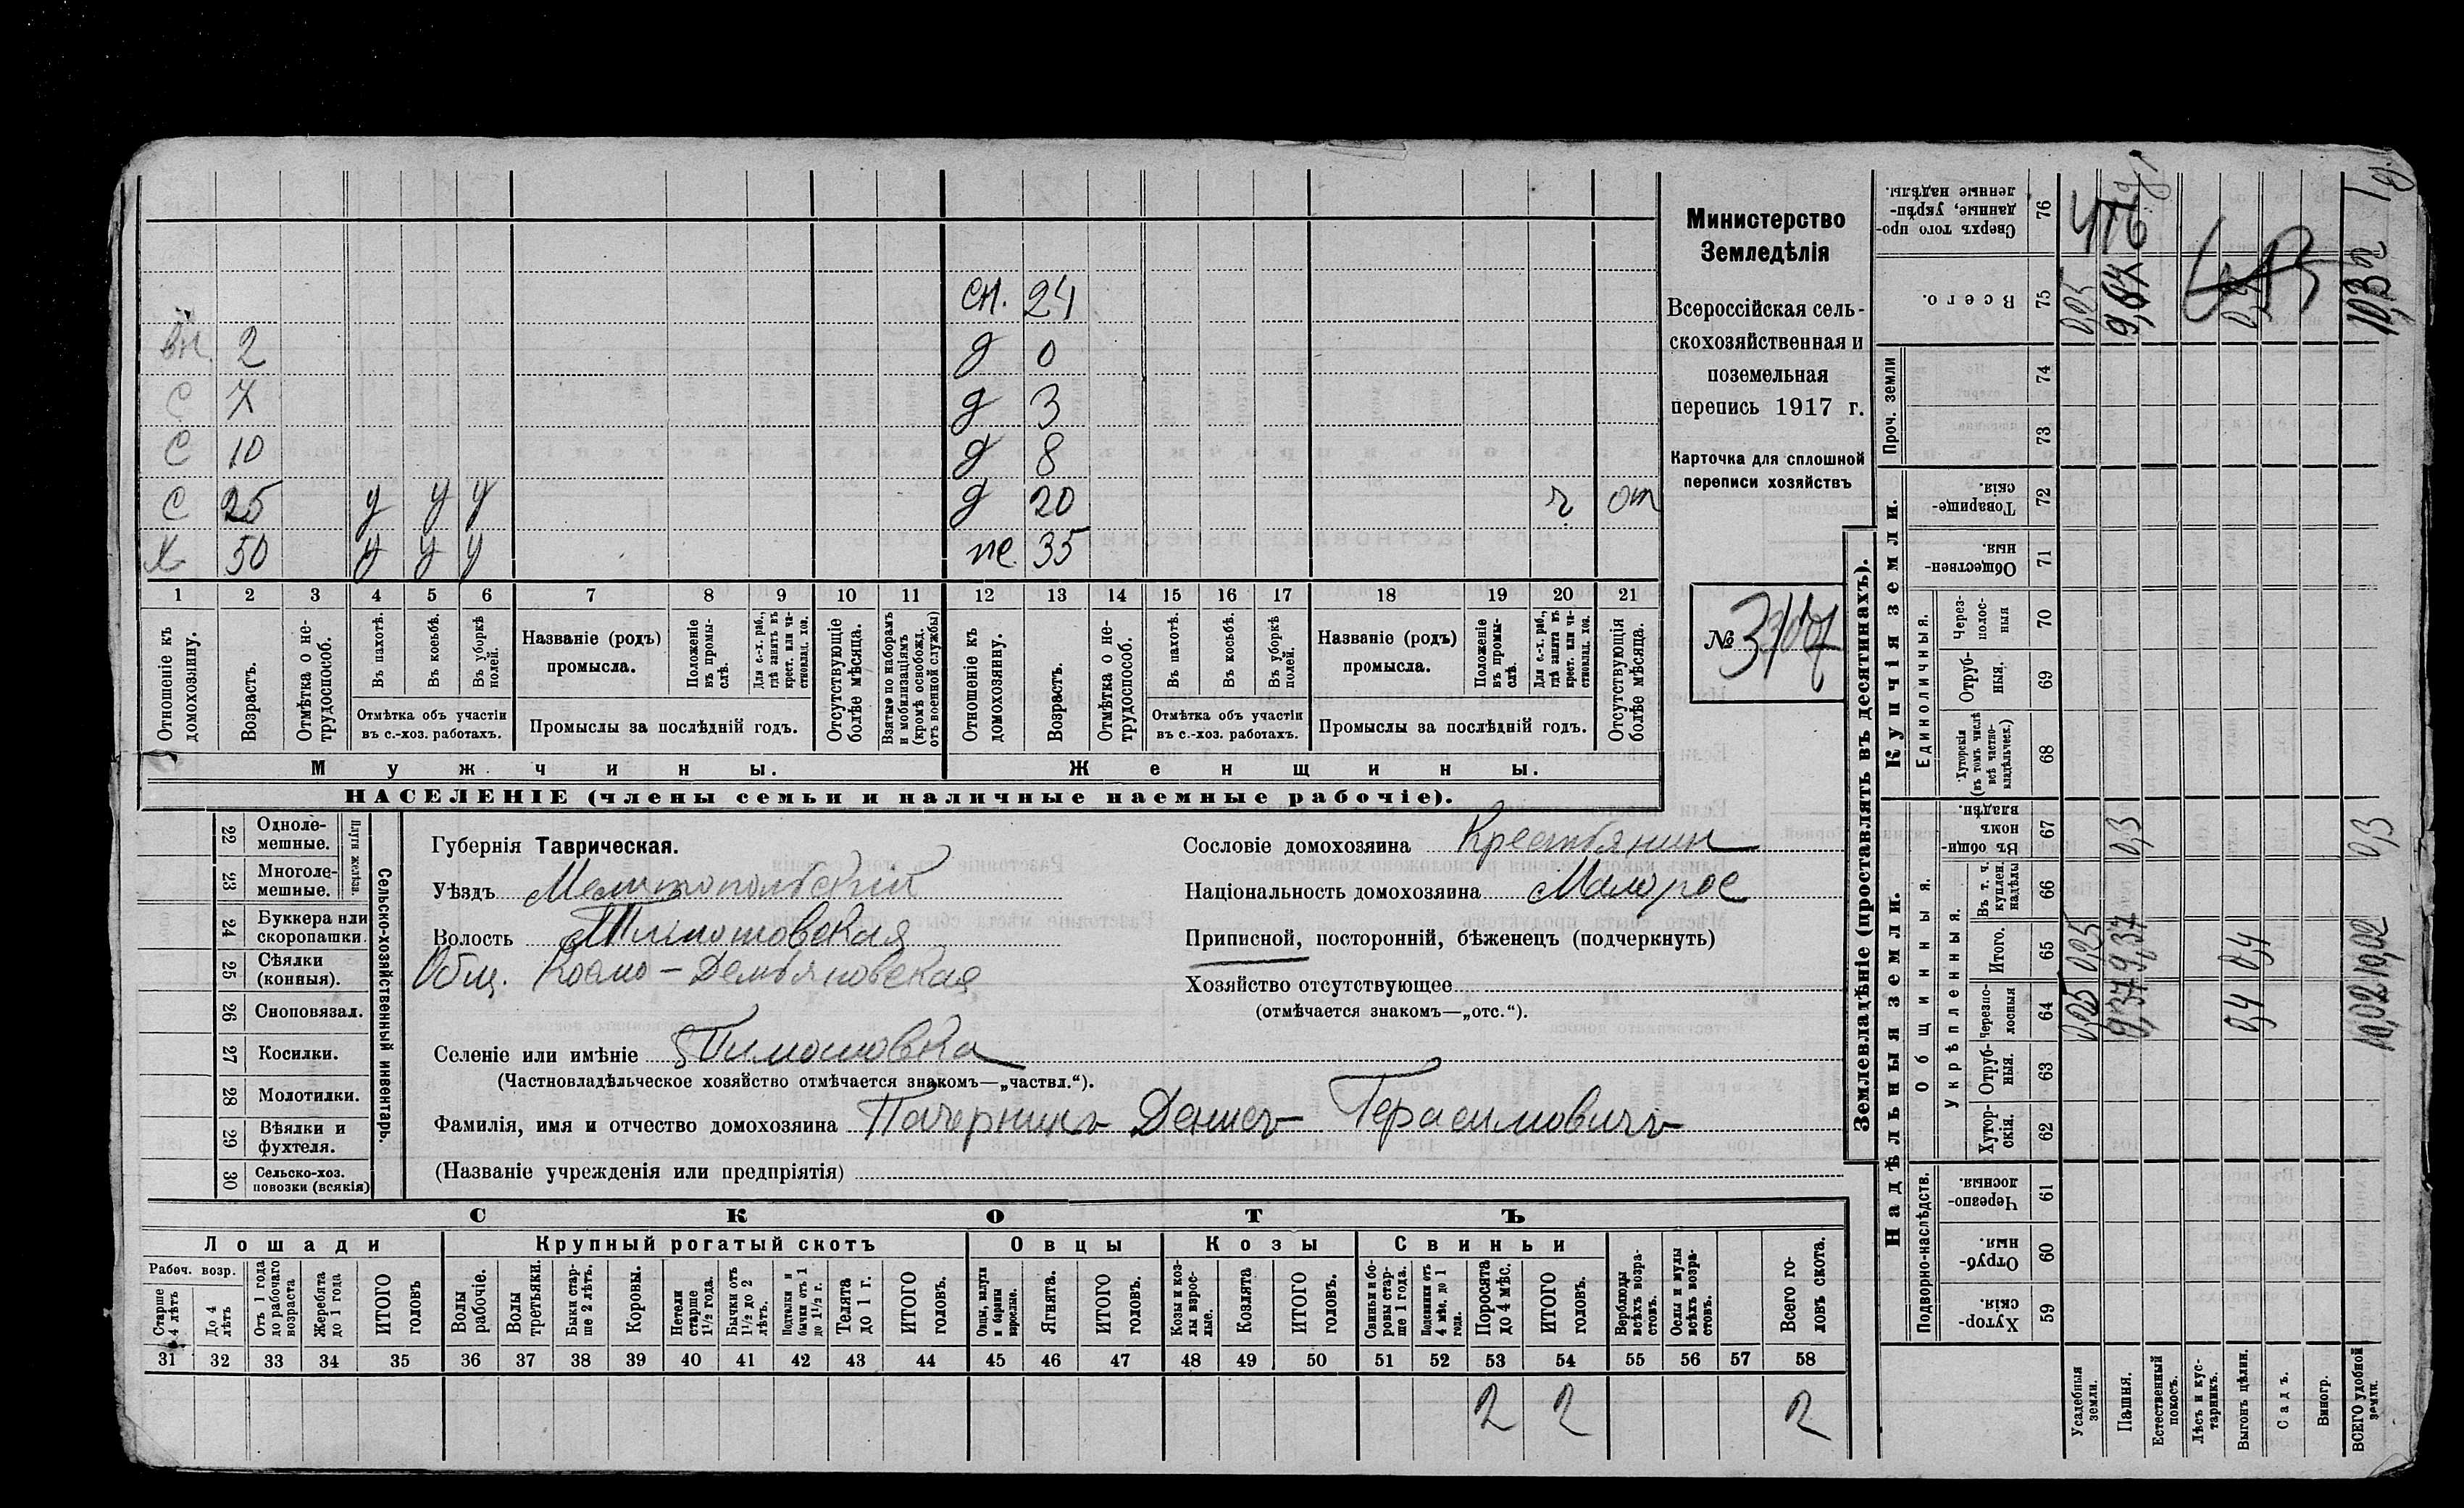 сн. 24
вн. 2 д 0
с 7 д 3
с 10 д 8
с 25 у у у д 20 г от
х 50 у у у же. 35
1 2 3 4 5 6 7 8 9 10 11 12 13 14 15 16 17 18 19 20 21
Отношеніе къ домохозяину.
Возрастъ.
Отмѣтка о нетрудоспособ.
Въ пахотѣ.
Въ косьбѣ.
Въ уборкѣ полей.
Отмѣтка объ участіи въ с.-хоз. работахъ.
Названіе (родъ) промысла.
Положеніе въ промыслѣ.
Для с.-х. раб., гдѣ занятъ въ крест. или частновлад. хоз.
Промыслы за послѣдній годъ.
Отсутствующіе болѣе мѣсяца.
Взятые по наборамъ и мобилизаціямъ (кромѣ освобожд. отъ военной службы)
Отношеніе къ домохозяину.
Возрастъ.
Отмѣтка о нетрудоспособ.
Въ пахотѣ.
Въ косьбѣ.
Въ уборкѣ полей.
Отмѣтка объ участіи въ с.-хоз. работахъ.
Названіе (родъ) промысла.
Положеніе въ промыслѣ.
Для с.-х. раб., гдѣ занята въ крест. или частновлад. хоз.
Промыслы за послѣдній годъ.
Отсутствующія болѣе мѣсяца.
Мужчины. Женщины.
НАСЕЛЕНІЕ (члены семьи и наличные наемные рабочіе).
Министерство
Земледѣлія
Всероссійская сель-
скохозяйственная и
поземельная
перепись 1917 г.
Карточка для сплошной
переписи хозяйствъ
№
Сельско-хозяйственный инвентарь.
Плуги желѣз.
22 Одноле-
мешные.
23 Многоле-
мешные.
24 Буккера или
скоропашки.
25 Сѣялки
(конныя).
26 Сноповязал.
27 Косилки.
28 Молотилки.
29 Вѣялки и
фухтеля.
30 Сельско-хоз.
повозки (всякія)
Губернія Таврическая.
Уѣздъ Мелитопольскій
Волость Тимошовская
Общ. Космо-Демьяновская
Селеніе или имѣніе Тимошовка
(Частновладѣльческое хозяйство отмѣчается знакомъ—„частвл.“).
Фамилія, имя и отчество домохозяина Герасимовичъ
(Названіе учрежденія или предпріятія)
Сословіе домохозяина Крестьянин
Національность домохозяина Малорос
Приписной, посторонній, бѣженецъ (подчеркнуть)
Хозяйство отсутствующее
(отмѣчается знакомъ—„отс.“).
СКОТЪ
Лошади Крупный рогатый скотъ Овцы Козы Свиньи
Рабоч. возр.
Старше 4 лѣтъ
До 4 лѣтъ
Отъ 1 года до рабочаго возраста
Жеребята до 1 года
ИТОГО головъ
Волы рабочіе.
Волы третьяки.
Быки старше 2 лѣтъ.
Коровы.
Нетели старше 1½ года.
Бычки отъ 1½ до 2 лѣтъ.
Подтелки и бычки отъ 1 до 1½ г.
Телята до 1 г.
ИТОГО головъ.
Овцы, валухи и бараны взрослые.
Ягнята.
ИТОГО головъ.
Козы и козлы взрослые.
Козлята
ИТОГО головъ.
Свиньи и боровы старше 1 года.
Подсвинки отъ 4 мѣс. до 1 года.
Поросята до 4 мѣс.
ИТОГО головъ.
Верблюды всѣхъ возрастовъ.
Ослы и мулы всѣхъ возрастовъ.
Всего головъ скота.
31 32 33 34 35 36 37 38 39 40 41 42 43 44 45 46 47 48 49 50 51 52 53 54 55 56 57 58
2 2 2
Землевладѣніе (проставлять въ десятинахъ).
Надѣльныя земли. Купчія земли. Проч. земли
Подворно-наслѣдств.
Общинныя.
Укрѣпленныя.
Единоличныя.
Хуторскія. 59
Отрубныя. 60
Черезполосныя 61
Хуторскія. 62
Отрубныя. 63
Черезполосныя 64
Итого. 65
Въ т. ч. куплен. надѣлы 66
Въ общинномъ владѣн. 67
Хуторскія (въ томъ числѣ всѣ частновладѣльческ.) 68
Отрубныя. 69
Черезполосныя 70
Общественныя. 71
Товарищескія. 72
73
74
Всего. 75
Сверхъ того проданные, укрѣпленные надѣлы. 76
Усадебныя земли. 0,25 0,25
Пашня. 9,37 9,37 0,3
Естественный покосъ.
Лѣсъ и кустарникъ.
Выгонъ цѣлин. 0,4 0,4
Садъ.
Виногр.
ВСЕГО удобной земли. 10,02 10,02 0,3 10,32